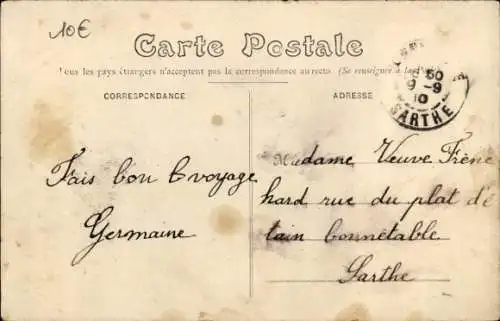 10€
Carte Postale
Tous les pays étrangers n'acceptent pas la correspondance au recto. (Se renseigner à la
CORRESPONDANCE
ADRESSE
50
9-9
10
SARTHE
Fais bon voyage
Germaine
Madame Veuve Fréné
hard rue du plat d'é
tain bonnétable
Sarthe